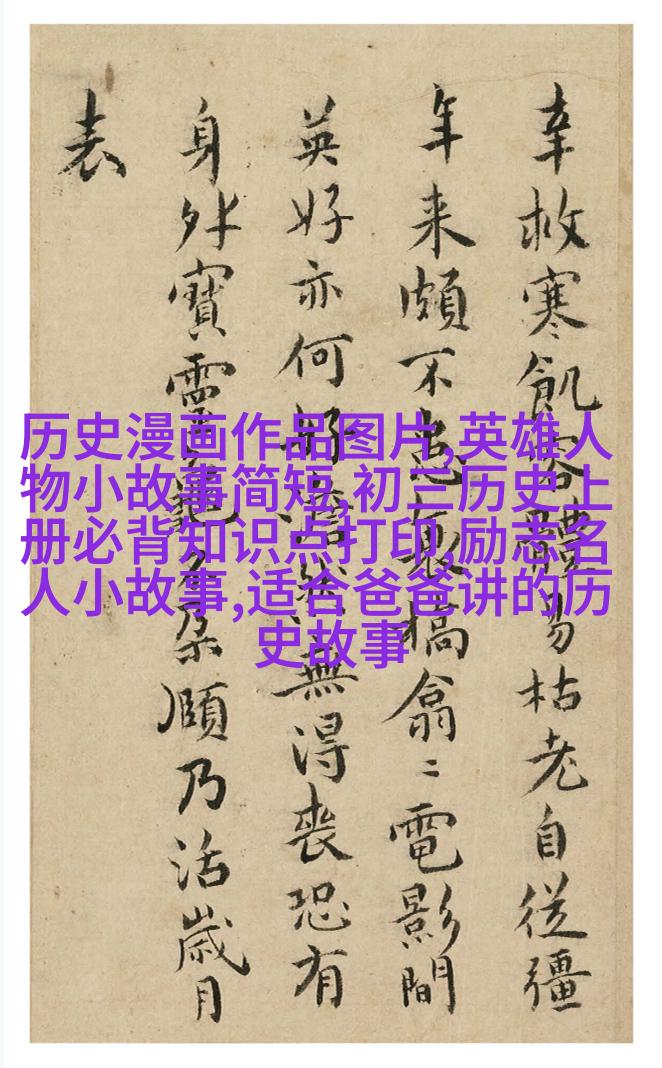 幸救寒飢體易枯老自從彊
年来頗不槁翕〻電影間
英好亦何好澹然無得喪恐有
身外寶靈龜朵頤乃活歲月
表
历史漫画作品图片,英雄人
物小故事简短,初三历史上
册必背知识点打印,励志名
人小故事,适合爸爸讲的历
史故事